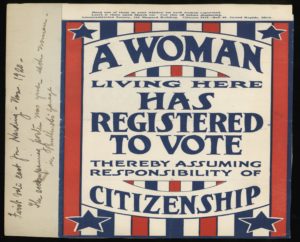 A WOMAN
LIVING HERE
HAS
REGISTERED
TO VOTE
THEREBY ASSUMING
RESPONSIBILITY OF
CITIZENSHIP
First vote cast for Harding - Nov 1920 -
The accompanying poster was given each woman